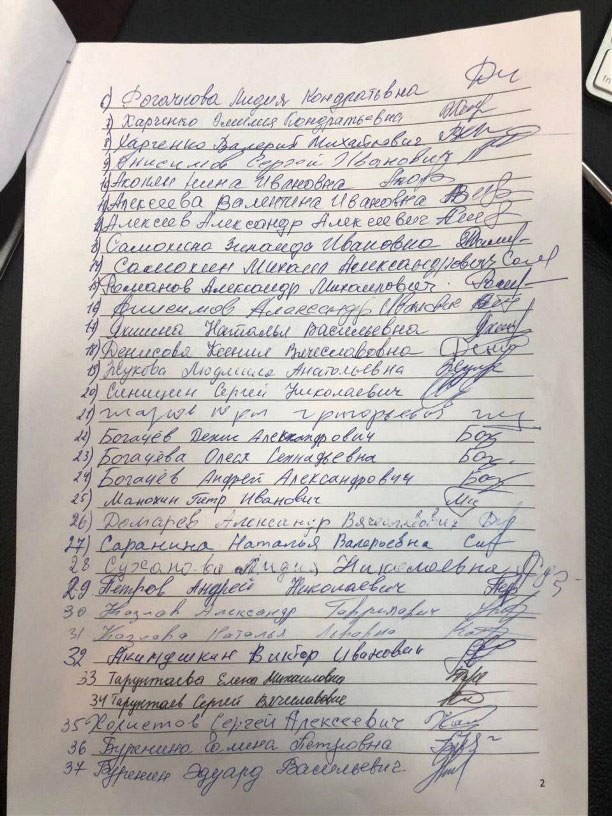 6) Рогачкова Лидия Кондратьевна
7) Харченко Эмилия Кондратьевна
8) Харченко Валерий Михайлович
9) Анисимов Сергей Иванович
10) Акопян Нина Ивановна
11) Алексеева Валентина Ивановна
12) Алексеев Александр Алексеевич
13) Самохина Зинаида Ивановна
14) Самохин Михаил Александрович
15) Романов Александр Михайлович
16) Анисимов Александр Иванович
17) Яшина Наталья Васильевна
18) Денисова Ксения Вячеславовна
19) Жукова Людмила Анатольевна
20) Синицин Сергей Николаевич
21)
22) Богачёв Денис Александрович Бог
23) Богачёва Олеся Геннадьевна Бог.
24) Богачёв Андрей Александрович Бог
25) Манохин Петр Иванович
26) Домарев Александр Вячеславович
27) Саранина Наталья Валерьевна
28 Суханова Лидия Николаевна
29 Петров Андрей Николаевич
30 Козлов Александр Гаврилович
31 Козлова Наталья
32 Акимушкин Виктор Иванович
33 Тарунтаева Елена Михайловна
34 Тарунтаев Сергей Вячеславович
35 Хористов Сергей Алексеевич
36 Буренина Галина Петровна
37 Буренин Эдуард Васильевич
2